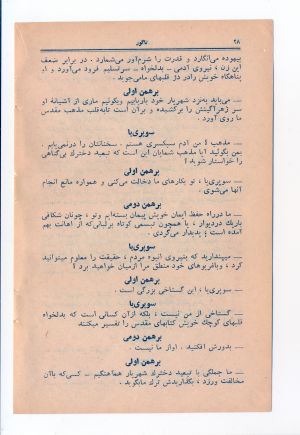 ۲۸
تاگور
بیهوده می‌انگارد و قدرت را شرم‌آور می‌شمارد . در برابر ضعف
این زن ، نیروی آدمی ـ بدلخواه ـ سرتسلیم فرود می‌آورد و او
پناهگاه خویش را در دژ قلبهای ما می‌جوید .
برهمن اولی
ـ می‌باید به‌نزد شهریار خود باریابیم وبگوئیم ماری از آشیانهٔ او
سر زهرآگینش را برکشیده و برآن است تا به‌قلب مذهب مقدس
ما روی آورد .
سوپری‌یا
ـ مذهب ! من آدم سبکسری هستم . سخنانتان را درنمی‌یابم .
بمن بگوئید آیا مذهب شما براین است که تبعید دخترک بی‌گناهی
را خواستار شوید ؟
برهمن اولی
ـ سوپری‌یا ، تو بکارهای ما دخالت می‌کنی و همواره مانع انجام
آنها می‌شوی .
برهمن دومی
ـ ما در راه حفظ ایمان خویش پیمان بسته‌ایم وتو ، چونان شکافی
باریک در دیوار ، یا همچون تبسمی کوتاه برلبانی‌که از اهانت بهم
آمده است ؛ پدیدار می‌گردی .
سوپری‌یا
ـ میپندارید که بنیروی انبوه مردم ، حقیقت را معلوم میتوانید
کرد ، وبافریوهای خود منطق مرا از میان خواهید برد ؟
برهمن اولی
ـ سوپری‌یا ، این گستاخی بزرگی است .
سوپری‌یا
ـ گستاخی از من نیست ، بلکه از آن کسانی است که بدلخواه
قلبهای کوچک خویش کتابهای مقدس را تفسیر میکنند
برهمن دومی
ـ بدورش افکنید . او از ما نیست .
برهمن اولی
ـ ما جملگی با تبعید دخترک شهریار هماهنگیم ـ کسی‌که با آن
مخالفت ورزد ، بگذار بدنش ترک ما بگوید .